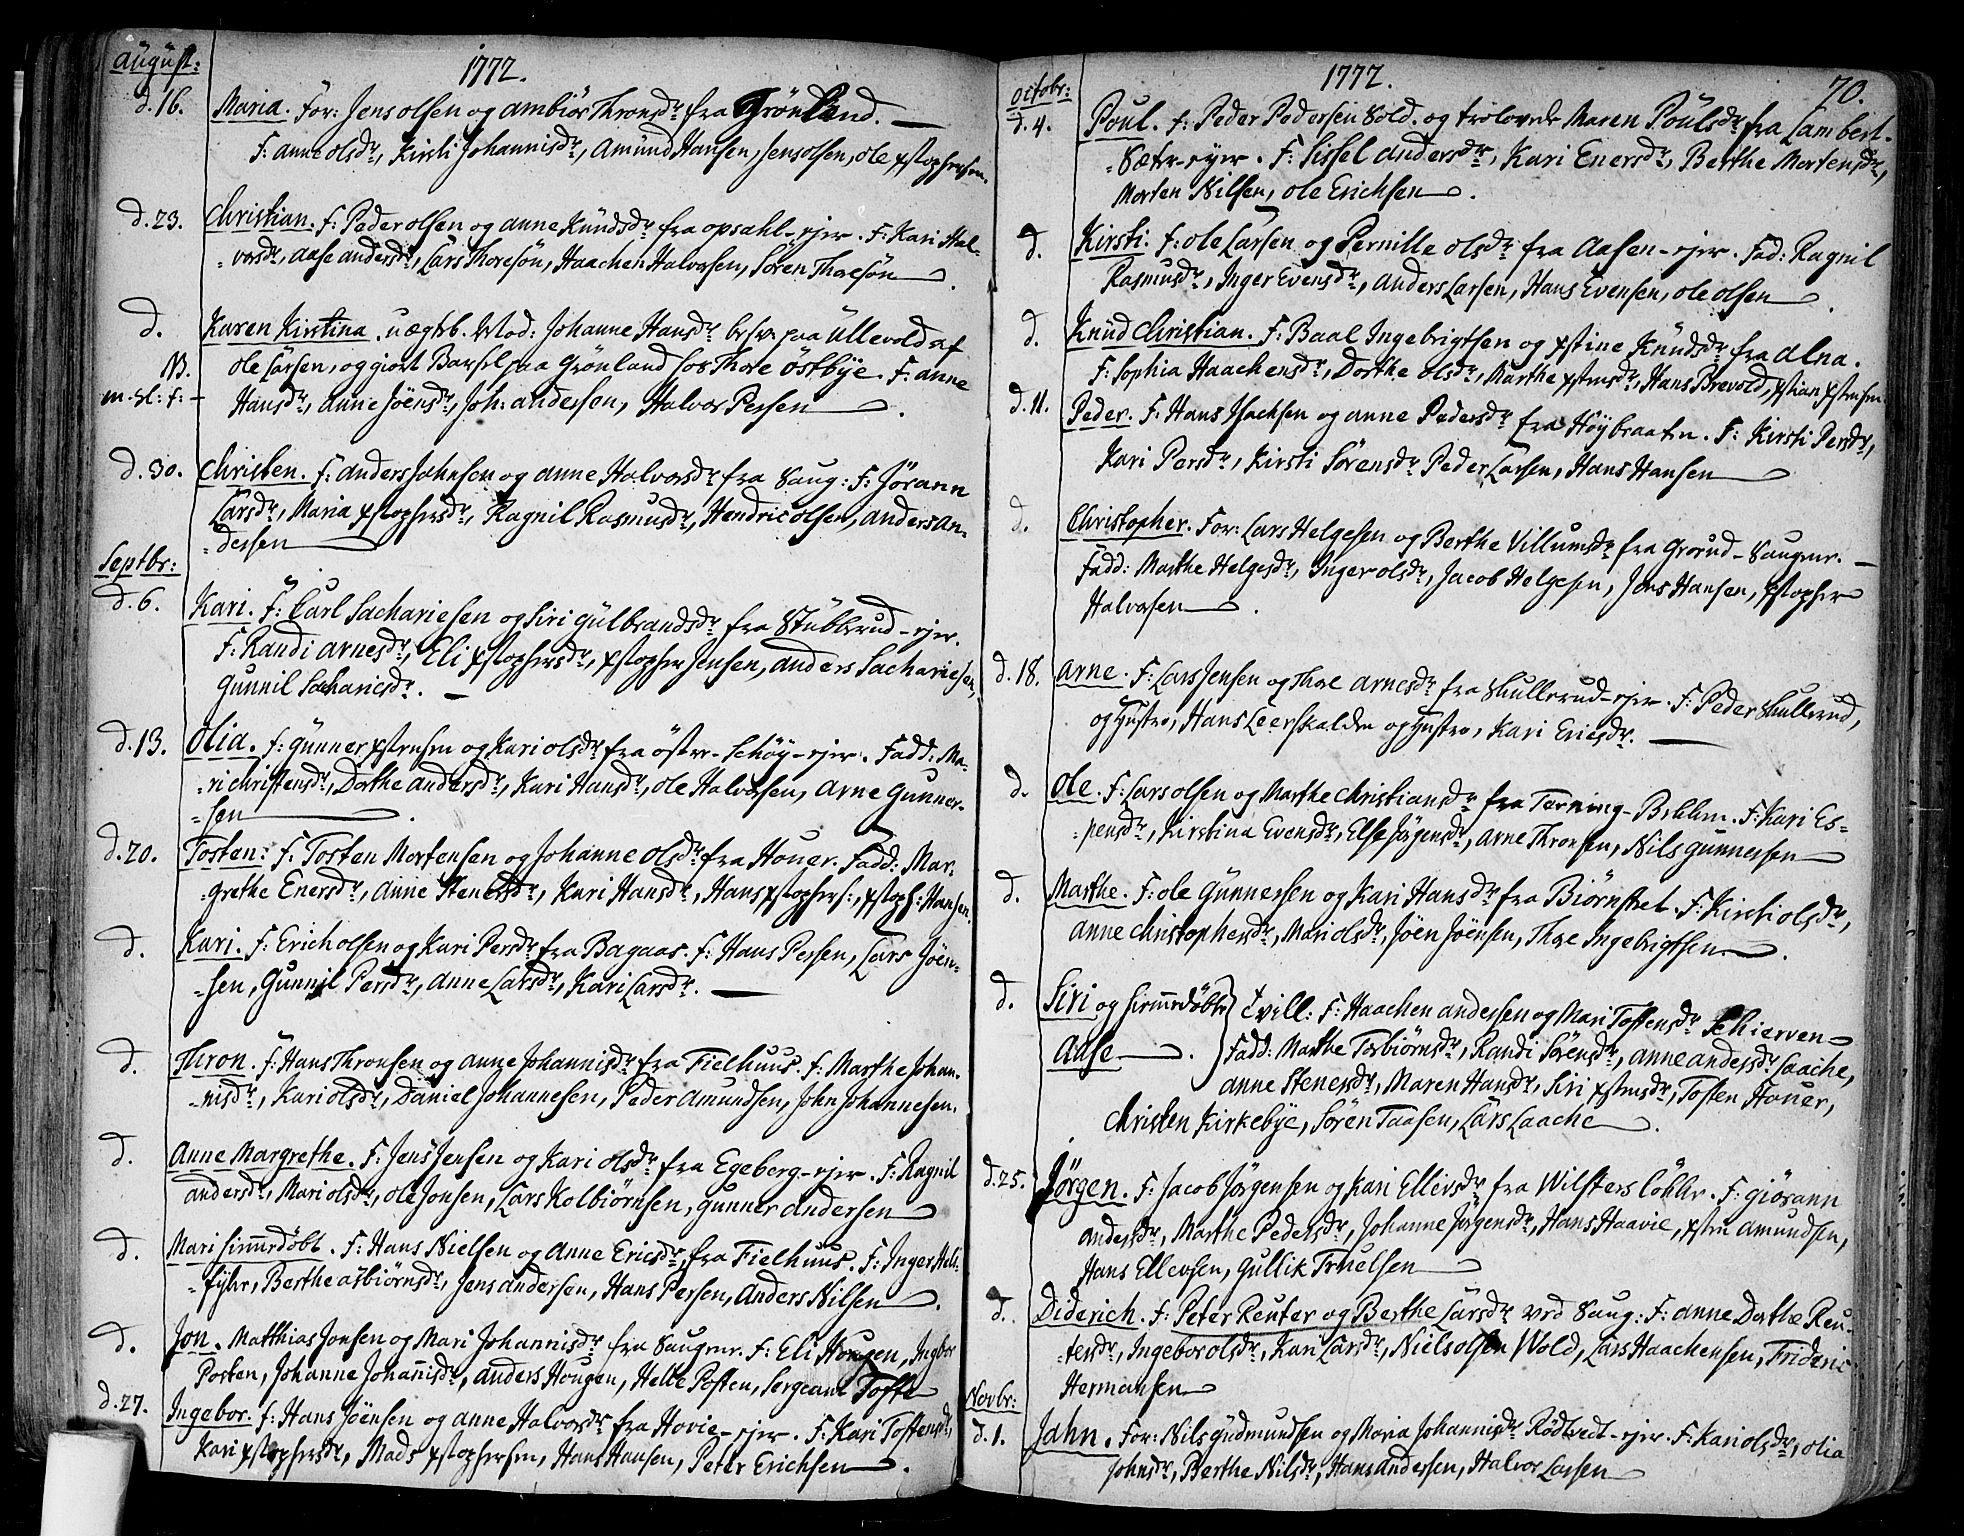 August: 1772.
d. 16. Maria. For: Jens olsen og Ambiør Thronsdr fra Grönland. —
F. anne olsdr, Kirsti Johannisdr, Amund Hansen, Jens olsen, ole xstophersen.
d. 23. Christian. f: Peder olsen og anne Knudsdr fra opsahl-ejer. F: Kari Hal-
-vorsdr, Aase andersdr, Lars Thoresøn, Haachen Halvorsen, Søren Thoresøn.
d. Karen Kirstina. uægtb. Mod: Johanne Hansdr besv. paa Ullevold af
NB. ole Larsen, og giort Barsel paa Grönland hos Thore östbye. F: anne
m.sl: f: — Hansdr, Anne Jöensdr, Joh: andersen, Halvor Persen.
d. 30. Christen. F: anders Johnsen og anne Halvorsdr fra Saug: F: Jörann
Larsdr, Maria xstophersdr, Ragnil Rasmusdr, Hendric olsen, anders An-
-dersen
Septbr:
d. 6. Kari. F: Carl Sachariesen og Siri Gulbrandsdr fra Stubberud-ejer.
F: Randi Arnesdr, Eli xstophersdr, xstopher Jensen, Anders Sachariesen,
Gunnil Sachariesdr. —
d. 13. Olia. f: Gunner xstensen og Kari olsdr fra östre-Schöy-ejer. Fadd: Ma-
-ri Christensdr, Dorthe andersdr, Kari Hansdr, ole Halvorsen, Arne Gunner-
-sen.
d. 20. Tosten: f. Tosten Mortensen og Johanne olsdr fra Houer. Fadd: Mar-
grethe Enersdr, Anne Stenersdr, Kari Hansdr, Hans xstophers:, xstoph: Hansen.
d. Kari. F. Erich olsen og Kari Persdr fra Bagaas. f: Hans Persen, Lars Jöen-
-sen, Gunnil Persdr, Anne Larsdr, Kari Larsdr. —
d. Thron. f. Hans Thronsen og Anne Johannisdr fra Fielhuus. f. Marthe Johan-
-nisdr, Kari olsdr, Daniel Johannesen, Peder Amundsen, John Johannesen.
d. Anne Margrethe. F. Jens Jensen og Kari olsdr fra Egeberg-ejer. F. Ragnil
andersdr, Mari olsdr, ole Jonsen, Lars Kolbiörnsen, Gunner Andersen
d. Mari hiemmedöbt. F: Hans Nielsen og Anne Ericsdr fra Fielhuus. F: Inger Hels-
-fyhr, Berthe asbiörnsdr, Jens andersen, Hans Persen, Anders Nilsen.
d. Jon. Matthias Jonsen og Mari Johannisdr fra Saugner. F: Eli Hougen, Ingbor
Posten, Johanne Johannisdr, Anders Hougen, Helle Posten, Sergeant Toffte
d. 27. Ingebor. f: Hans Jöensen og anne Halvorsdr fra Hovie-ejer. F. Kari Tostensdr,
Kari xstophersdr, Mads xstophersen, Hans Hansen, Peter Erichsen.
1772. 70.
Octobr:
d. 4. Poul. f: Peder Pedersen Sold. og trolovede Maren Poulsdr fra Lambert-
-Sæter-ejer. F: Sissel andersdr, Kari Enersdr, Berthe Mortensdr,
Morten Nilsen, ole Erichsen.
d. Kirsti: f: ole Larsen og Pernille olsdr fra Aasen-ejer. Fad: Ragnil
Rasmusdr, Inger Evensdr, Anders Larsen, Hans Evensen, ole olsen.
d. Knud Christian. F: Baal Ingebrigtsen og xstine Knudsdr fra Alna.
F: Sophia Haachensdr, Dorthe olsdr, Marthe xstensdr, Hans Brevold, xstian xstensen
d. 11. Peder. F. Hans Isachsen og anne Pedersdr fra Höybraaten. F: Kirsti Persdr,
Kari Persdr, Kirsti Sörensdr, Peder Larsen, Hans Hansen
d. Christopher. For: Lars Helgesen og Berthe Villumsdr fra Grorud-Saugner. —
Fadd: Marthe Helgesdr, Inger olsdr, Jacob Helgesen, Jens Hansen, xstopher
Halvorsen.
d. 18. Arne. F: Lars Jensen og Thore Arnesdr fra Skullerud-ejer. F: Peder Skullerud,
og Hustro, Hans Leerskalden og Hustro, Kari Ericsdr. —
d. Ole. F: Lars olsen og Marthe Christiansdr fra Terning-Bekken. F: Kari Es-
-pensdr, Kirstina Evensdr, Else Jörgensdr, Arne Thronsen, Nils Gunnersen
d. Marthe. F: ole Gunnersen og Kari Hansdr fra Biörnstret. F: Kirsti olsdr,
Anne Christophersdr, Mari olsdr, Jöen Jöensen, Thore Ingebrigtsen.
d. Siri og hiemmedöbte } tvill: F: Haachen andersen og Mari Tostensdr Schierven
Aase. Fadd: Marthe Torbiörnsdr, Randi Sörensdr, Anne andersdr Laache,
anne Stenersdr, Maren Hansdr, Siri xstensdr, Tosten Houer,
Christen Kirkebye, Sören Taasen, Lars Laache.
d. 25. Jörgen. F: Jacob Jörgensen og Kari Ellevsdr fra Wilsters Lökke. F: Giörann
Andersdr, Marthe Pedersdr, Johanne Jörgensdr, Hans Haavie, xsten Amundsen,
Hans Ellevsen, Gullik Truelsen
d. Diderich. f: Peter Reuter og Berthe Larsdr ved Saug: F: anne Dorthe Reu-
-tersdr, Ingebor olsdr, Kari Larsdr, Niels olsen Wold, Lars Haachensen, Frideric
Hermansen
Novbr:
d. 1. Jahn. For: Nils Gudmundsen og Maria Johannisdr Rödtvedt-ejer. F: Kari olsdr, Olia
Johnsdr, Berthe Nilsdr, Hans Andersen, Halvor Larsen